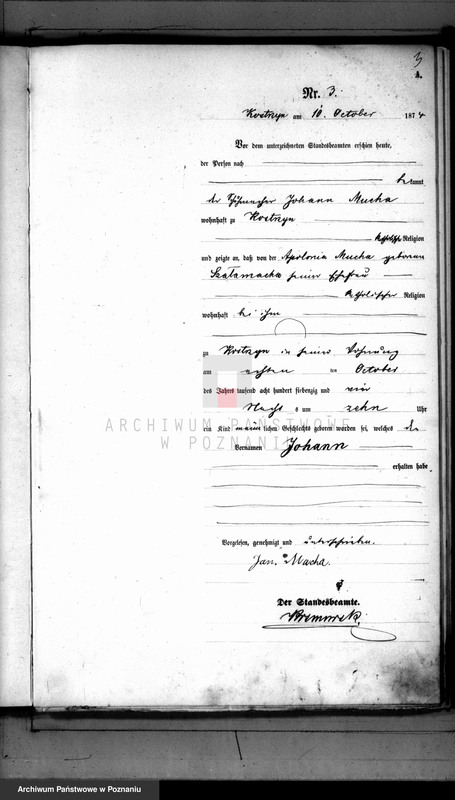 3
A.
Nr. 3.
Kostrzyn am 10. October 1874
Vor dem unterzeichneten Standesbeamten erschien heute,
der Person nach
be kannt
der Schuhmacher Johann Mucha
wohnhaft zu Kostrzyn
katholische Religion
und zeigte an, daß von der Apolonia Mucha geborenen
Szalamacha seiner Ehefrau
katholischer Religion
wohnhaft bei ihm
zu Kostrzyn in seiner Wohnung
am achten ten October
des Jahres tausend acht hundert siebenzig und vier
Nachts um zehn Uhr
ein Kind männlichen Geschlechts geboren worden sei, welches den
Vornamen Johann
erhalten habe
Vorgelesen, genehmigt und unterschrieben.
Jan Mucha.
Der Standesbeamte.
ARCHIWUM PAŃSTWOWE
W POZNANIU
Archiwum Państwowe w Poznaniu